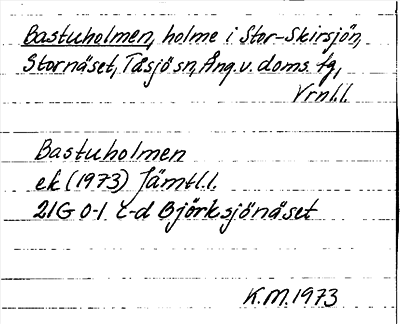 Bastuholmen, holme i Stor-Skirsjön,
Stornäset, Tåsjö sn, Ång. v. doms. fg,
Vrnl.l.
Bastuholmen
ek (1973) Jämtl.l.
21G 0-1 c-d Björksjönäset
K.M. 1973